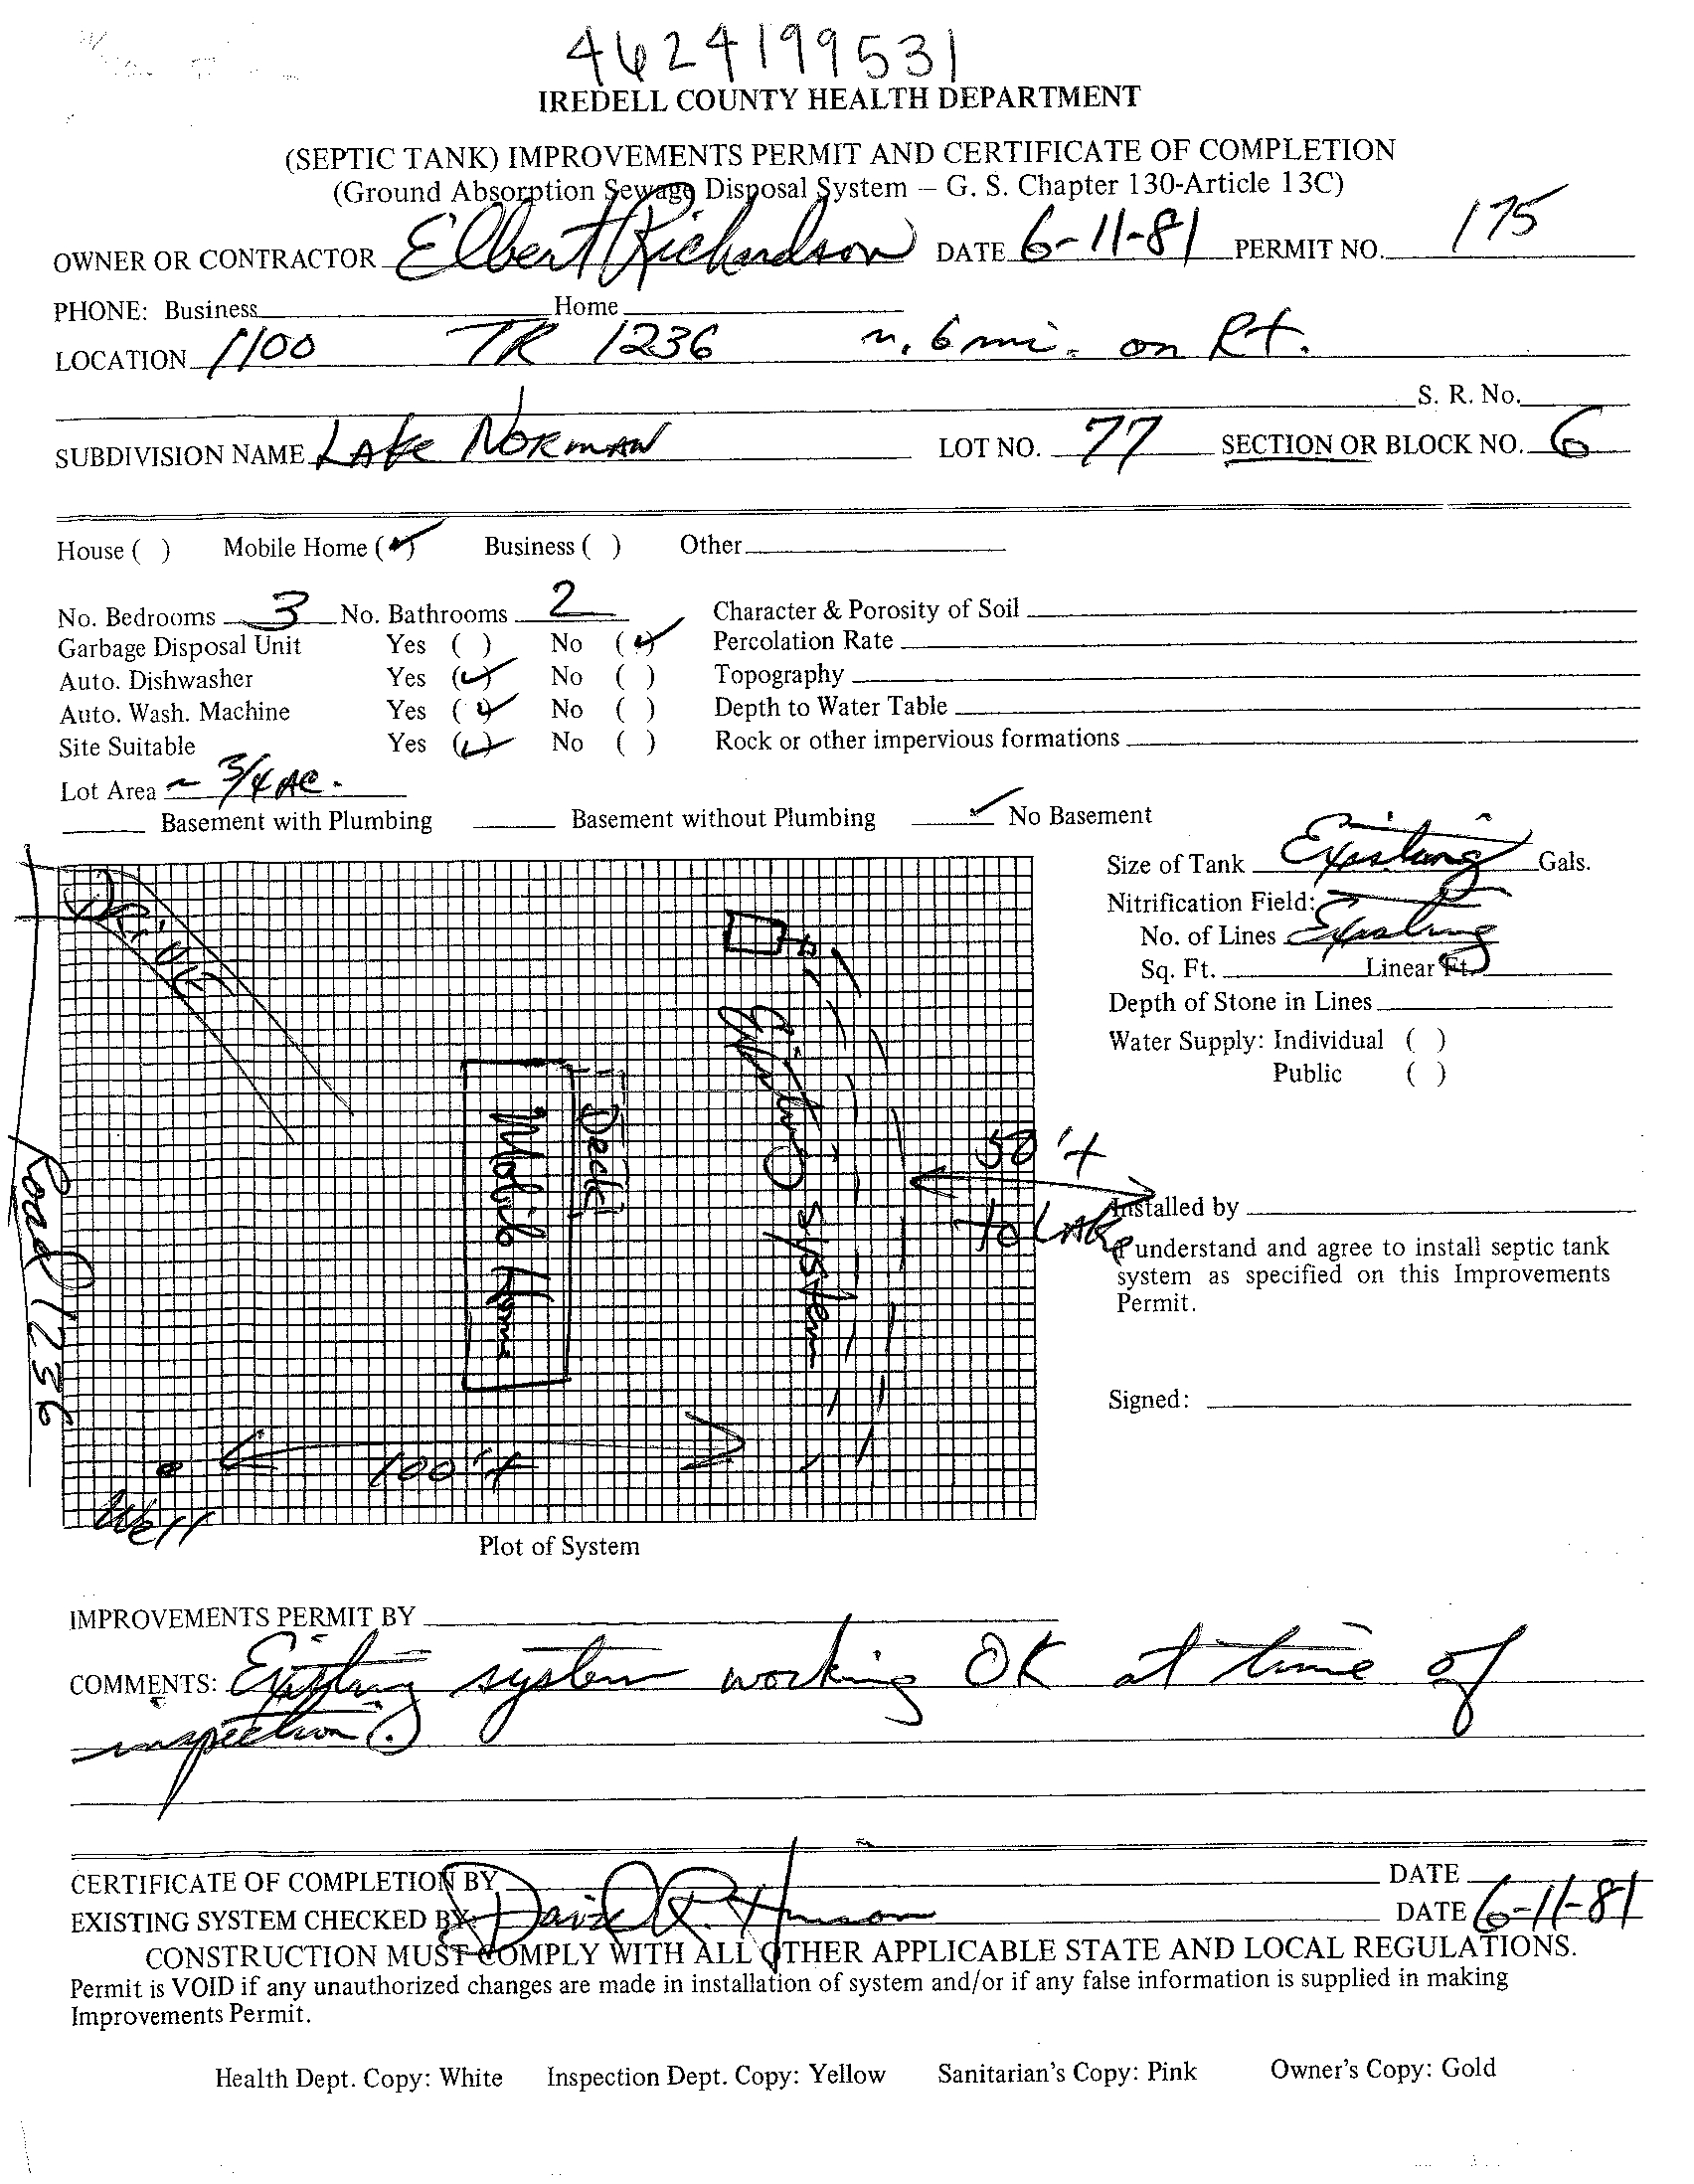 4624199531
IREDELL COUNTY HEALTH DEPARTMENT
(SEPTIC TANK) IMPROVEMENTS PERMIT AND CERTIFICATE OF COMPLETION
(Ground Absorption Sewage Disposal System – G. S. Chapter 130-Article 13C)
OWNER OR CONTRACTOR Elbert Richardson DATE 6-11-81 PERMIT NO. 175
PHONE: Business Home
LOCATION 1100 TR 1236 n. 6 mi. on Rt.
S. R. No.
SUBDIVISION NAME LAKE NORMAN LOT NO. 77 SECTION OR BLOCK NO. 6
House ( ) Mobile Home (✓) Business ( ) Other
No. Bedrooms 3 No. Bathrooms 2 Character & Porosity of Soil
Garbage Disposal Unit Yes ( ) No (✓) Percolation Rate
Auto. Dishwasher Yes (✓) No ( ) Topography
Auto. Wash. Machine Yes (✓) No ( ) Depth to Water Table
Site Suitable Yes (✓) No ( ) Rock or other impervious formations
Lot Area ~ 3/4 AC.
Basement with Plumbing Basement without Plumbing ✓ No Basement
Size of Tank Existing Gals.
Nitrification Field:
No. of Lines Existing
Sq. Ft. Linear Ft.
Depth of Stone in Lines
Water Supply: Individual ( )
Public ( )
Drive
Road 1236
Mobile Home
Deck
Existing System
50'+
to LAKE
100'+
Well
Installed by
I understand and agree to install septic tank
system as specified on this Improvements
Permit.
Signed:
Plot of System
IMPROVEMENTS PERMIT BY
COMMENTS: Existing system working OK at time of
inspection.
CERTIFICATE OF COMPLETION BY DATE
EXISTING SYSTEM CHECKED BY: David R. DATE 6-11-81
CONSTRUCTION MUST COMPLY WITH ALL OTHER APPLICABLE STATE AND LOCAL REGULATIONS.
Permit is VOID if any unauthorized changes are made in installation of system and/or if any false information is supplied in making
Improvements Permit.
Health Dept. Copy: White Inspection Dept. Copy: Yellow Sanitarian's Copy: Pink Owner's Copy: Gold